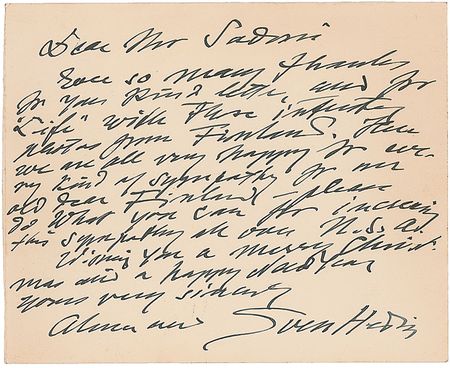 Dear Mr
Ever so many thanks
for your kind letter, and for
"Life" with these interesting
photos from Finland. Here
we are all very happy for eve-
ry kind of sympathy for our
old dear Finland, please
do what you can for increasing
this sympathy all over U.S.A.
Wishing you a merry Christ
mas and a happy New Year
yours very sincerely
Alma and Sven Hedin